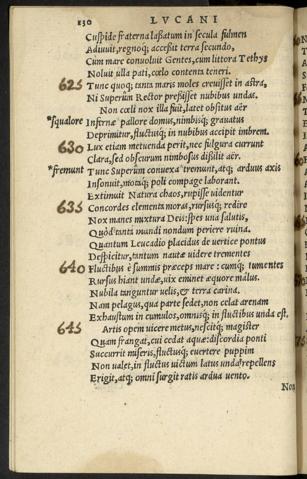 130 LVCANI
Cuspide fraterna lassatum in secula fulmen
Adiuuit, regnoq; accessit terra secundo,
Cum mare conuoluit Gentes, cum littora Tethys
Noluit ulla pati, cœlo contenta teneri.
625 Tunc quoq; tanta maris moles creuisset in astra,
Ni Superûm Rector pressisset nubibus undas.
Non cœli nox illa fuit, latet obsitus aër
*squalore Infernæ pallore domus, nimbisq; grauatus
Deprimitur, fluctusq; in nubibus accipit imbrem.
630 Lux etiam metuenda perit, nec fulgura currunt
Clara, sed obscurum nimbosus dissilit aër.
*fremunt Tunc Superûm conuexa tremunt, atq; arduus axis
Insonuit, motaq; poli compage laborant.
Extimuit Natura chaos, rupisse uidentur
635 Concordes elementa moras, rursusq; redire
Nox manes mixtura Deis: spes una salutis,
Quòd tanti mundi nondum periere ruina.
Quantum Leucadio placidus de uertice pontus
Despicitur, tantum nautæ uidere trementes
640 Fluctibus è summis præceps mare: cumq; tumentes
Rursus hiant undæ, uix eminet æquore malus.
Nubila tanguntur uelis, & terra carina.
Nam pelagus, qua parte sedet, non celat arenam
Exhaustum in cumulos, omnisq; in fluctibus unda est.
645 Artis opem uicere metus, nescitq; magister
Quam frangat, cui cedat aquæ: discordia ponti
Succurrit miseris, fluctusq; euertere puppim
Non ualet, in fluctus uictum latus unda repellens
Erigit, atq; omni surgit ratis ardua uento.
Non